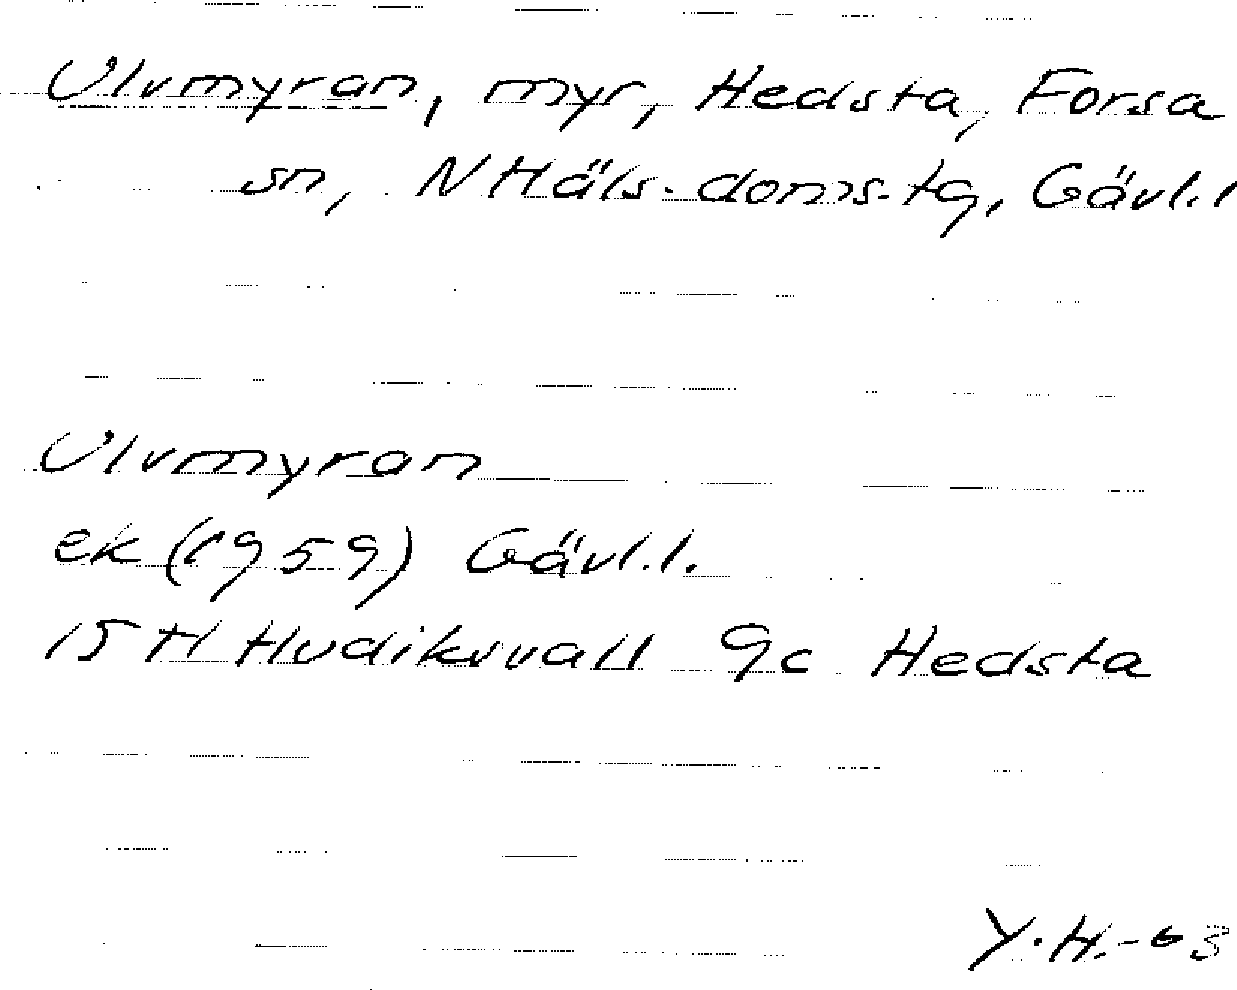 Ulvmyran, myr, Hedsta, Forsa
sn, N Häls. doms.tg, Gävl.l
Ulvmyran
ek (1959) Gävl.l.
15 H Hudiksvall 9c Hedsta
Y.H.-63